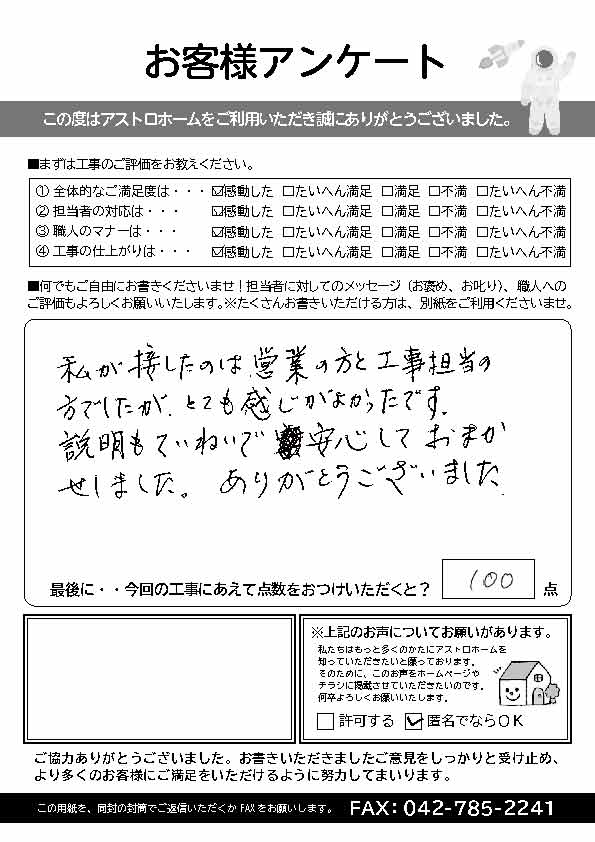 お客様アンケート
この度はアストロホームをご利用いただき誠にありがとうございました。
■まずは工事のご評価をお教えください。
① 全体的なご満足度は・・・ ☑感動した □たいへん満足 □満足 □不満 □たいへん不満
② 担当者の対応は・・・ ☑感動した □たいへん満足 □満足 □不満 □たいへん不満
③ 職人のマナーは・・・ ☑感動した □たいへん満足 □満足 □不満 □たいへん不満
④ 工事の仕上がりは・・・ ☑感動した □たいへん満足 □満足 □不満 □たいへん不満
■何でもご自由にお書きくださいませ！担当者に対してのメッセージ（お褒め、お叱り）、職人への
ご評価もよろしくお願いいたします。※たくさんお書きいただける方は、別紙をご利用くださいませ。
私が接したのは営業の方と工事担当の
方でしたが、とても感じがよかったです。
説明もていねいで安心しておまか
せしました。ありがとうございました
最後に・・今回の工事にあえて点数をおつけいただくと？ 100 点
※上記のお声についてお願いがあります。
私たちはもっと多くのかたにアストロホームを
知っていただきたいと願っております。
そのために、このお声をホームページや
チラシに掲載させていただきたいのです。
何卒よろしくお願いいたします。
□許可する ☑匿名でならＯＫ
ご協力ありがとうございました。お書きいただきましたご意見をしっかりと受け止め、
より多くのお客様にご満足をいただけるように努力してまいります。
この用紙を、同封の封筒でご返信いただくか FAX をお願いします。 FAX：042-785-2241